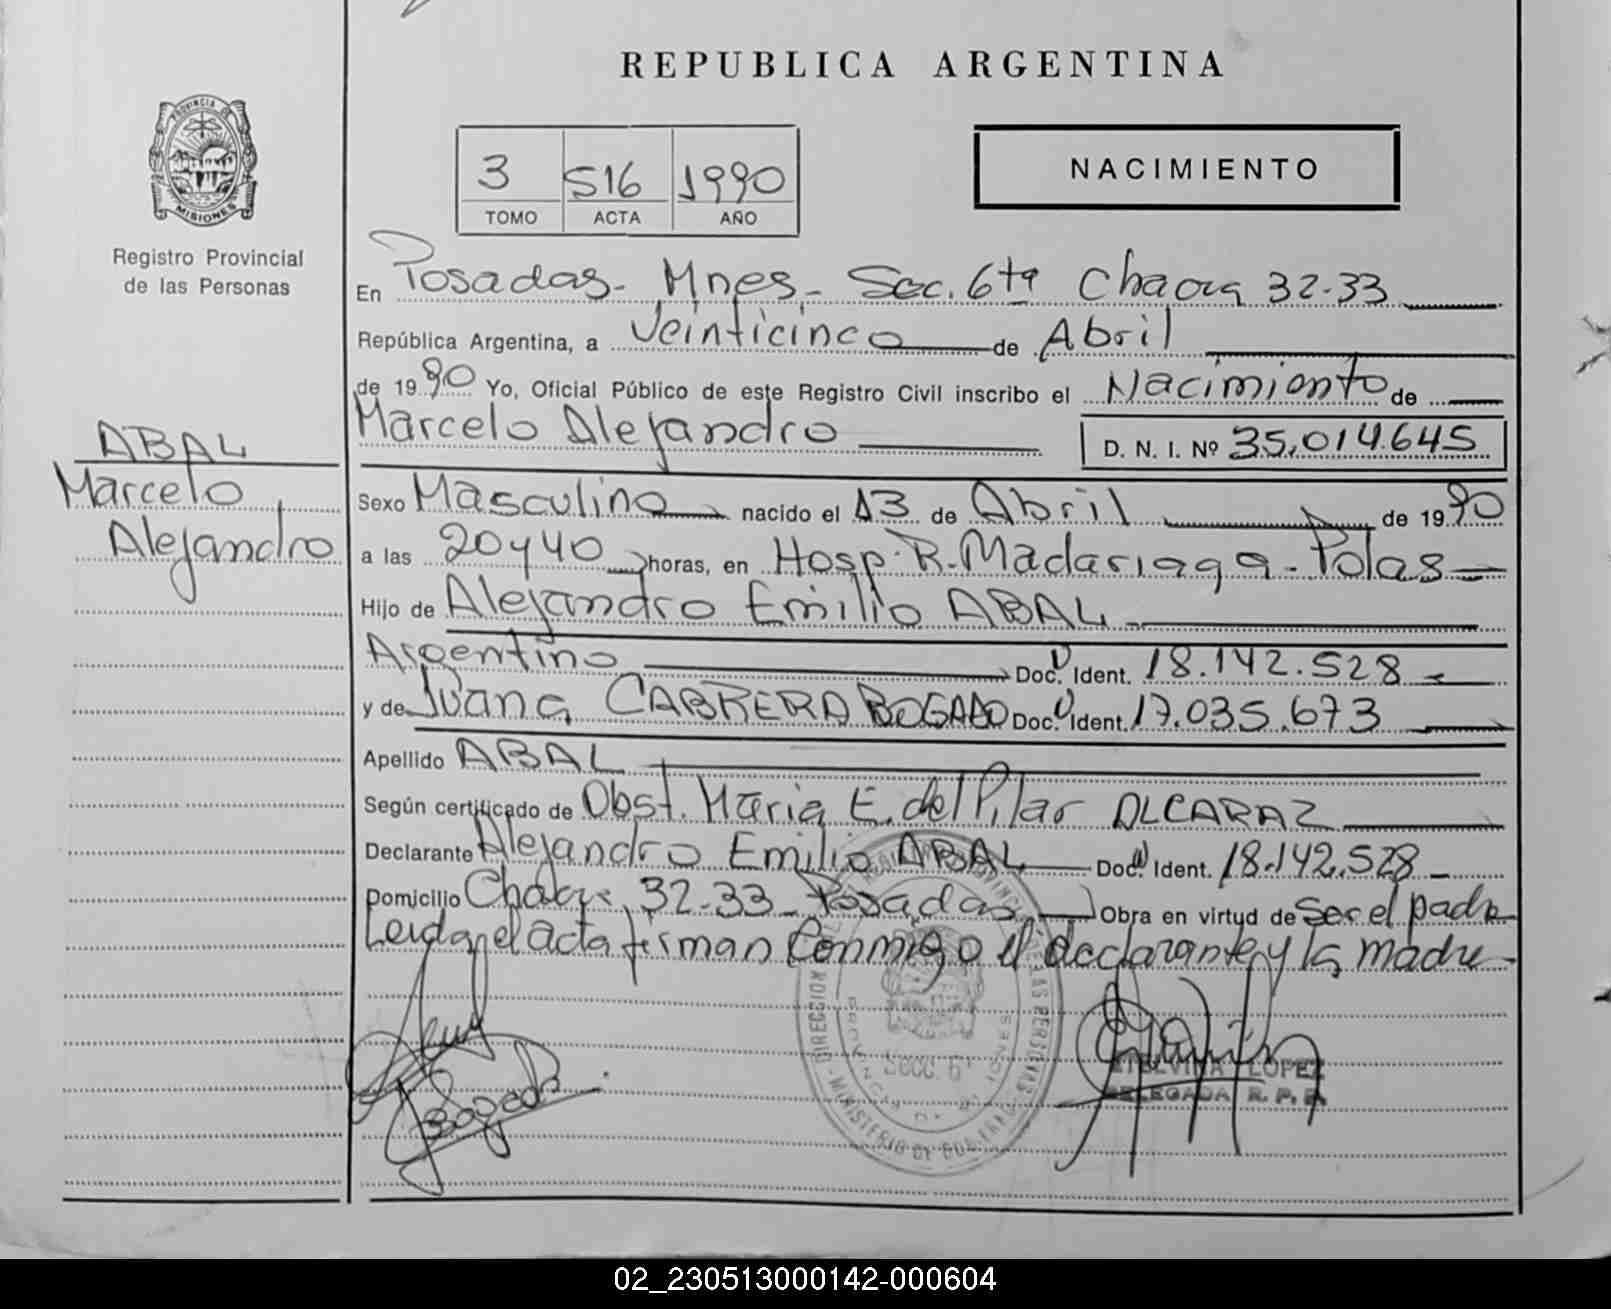 REPUBLICA ARGENTINA
PROVINCIA DE
MISIONES
Registro Provincial
de las Personas
3 516 1990
TOMO ACTA AÑO
NACIMIENTO
En Posadas - Mnes - Sec. 6ta Chacra 32-33
República Argentina, a Veinticinco de Abril
de 1990 Yo, Oficial Público de este Registro Civil inscribo el Nacimiento de
Marcelo Alejandro D. N. I. Nº 35.014.645
ABAL
Marcelo
Alejandro
Sexo Masculino nacido el 13 de Abril de 1990
a las 20 y 40 horas, en Hosp. R. Madariaga - Pdas
Hijo de Alejandro Emilio ABAL
Argentino Doc. Ident. 18.142.528
y de Juana CABRERA BOGADO Doc. Ident. 17.035.673
Apellido ABAL
Según certificado de Obst. Maria E. del Pilar ALCARAZ
Declarante Alejandro Emilio ABAL Doc. Ident. 18.142.528
Domicilio Chacra 32-33 Posadas Obra en virtud de Ser el padre
Leida el acta firman conmigo el declarante y la madre
Secc. 6ª
ETELVINA LOPEZ
DELEGADA R. P. P.
02_230513000142-000604